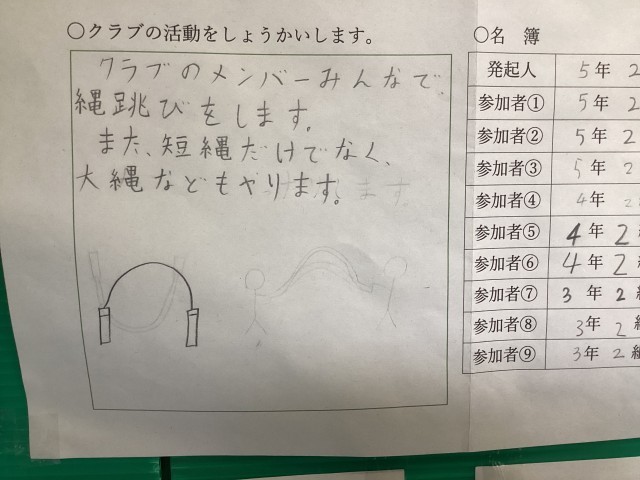 ○クラブの活動をしょうかいします。
クラブのメンバーみんなで、
縄跳びをします。
また、短縄だけでなく、
大縄などもやります。
○名 簿
発起人 5年 2
参加者① 5年 2
参加者② 5年 2
参加者③ 5年 2
参加者④ 4年 2
参加者⑤ 4年 2組
参加者⑥ 4年 2組
参加者⑦ 3年 2組
参加者⑧ 3年 2組
参加者⑨ 3年 2組